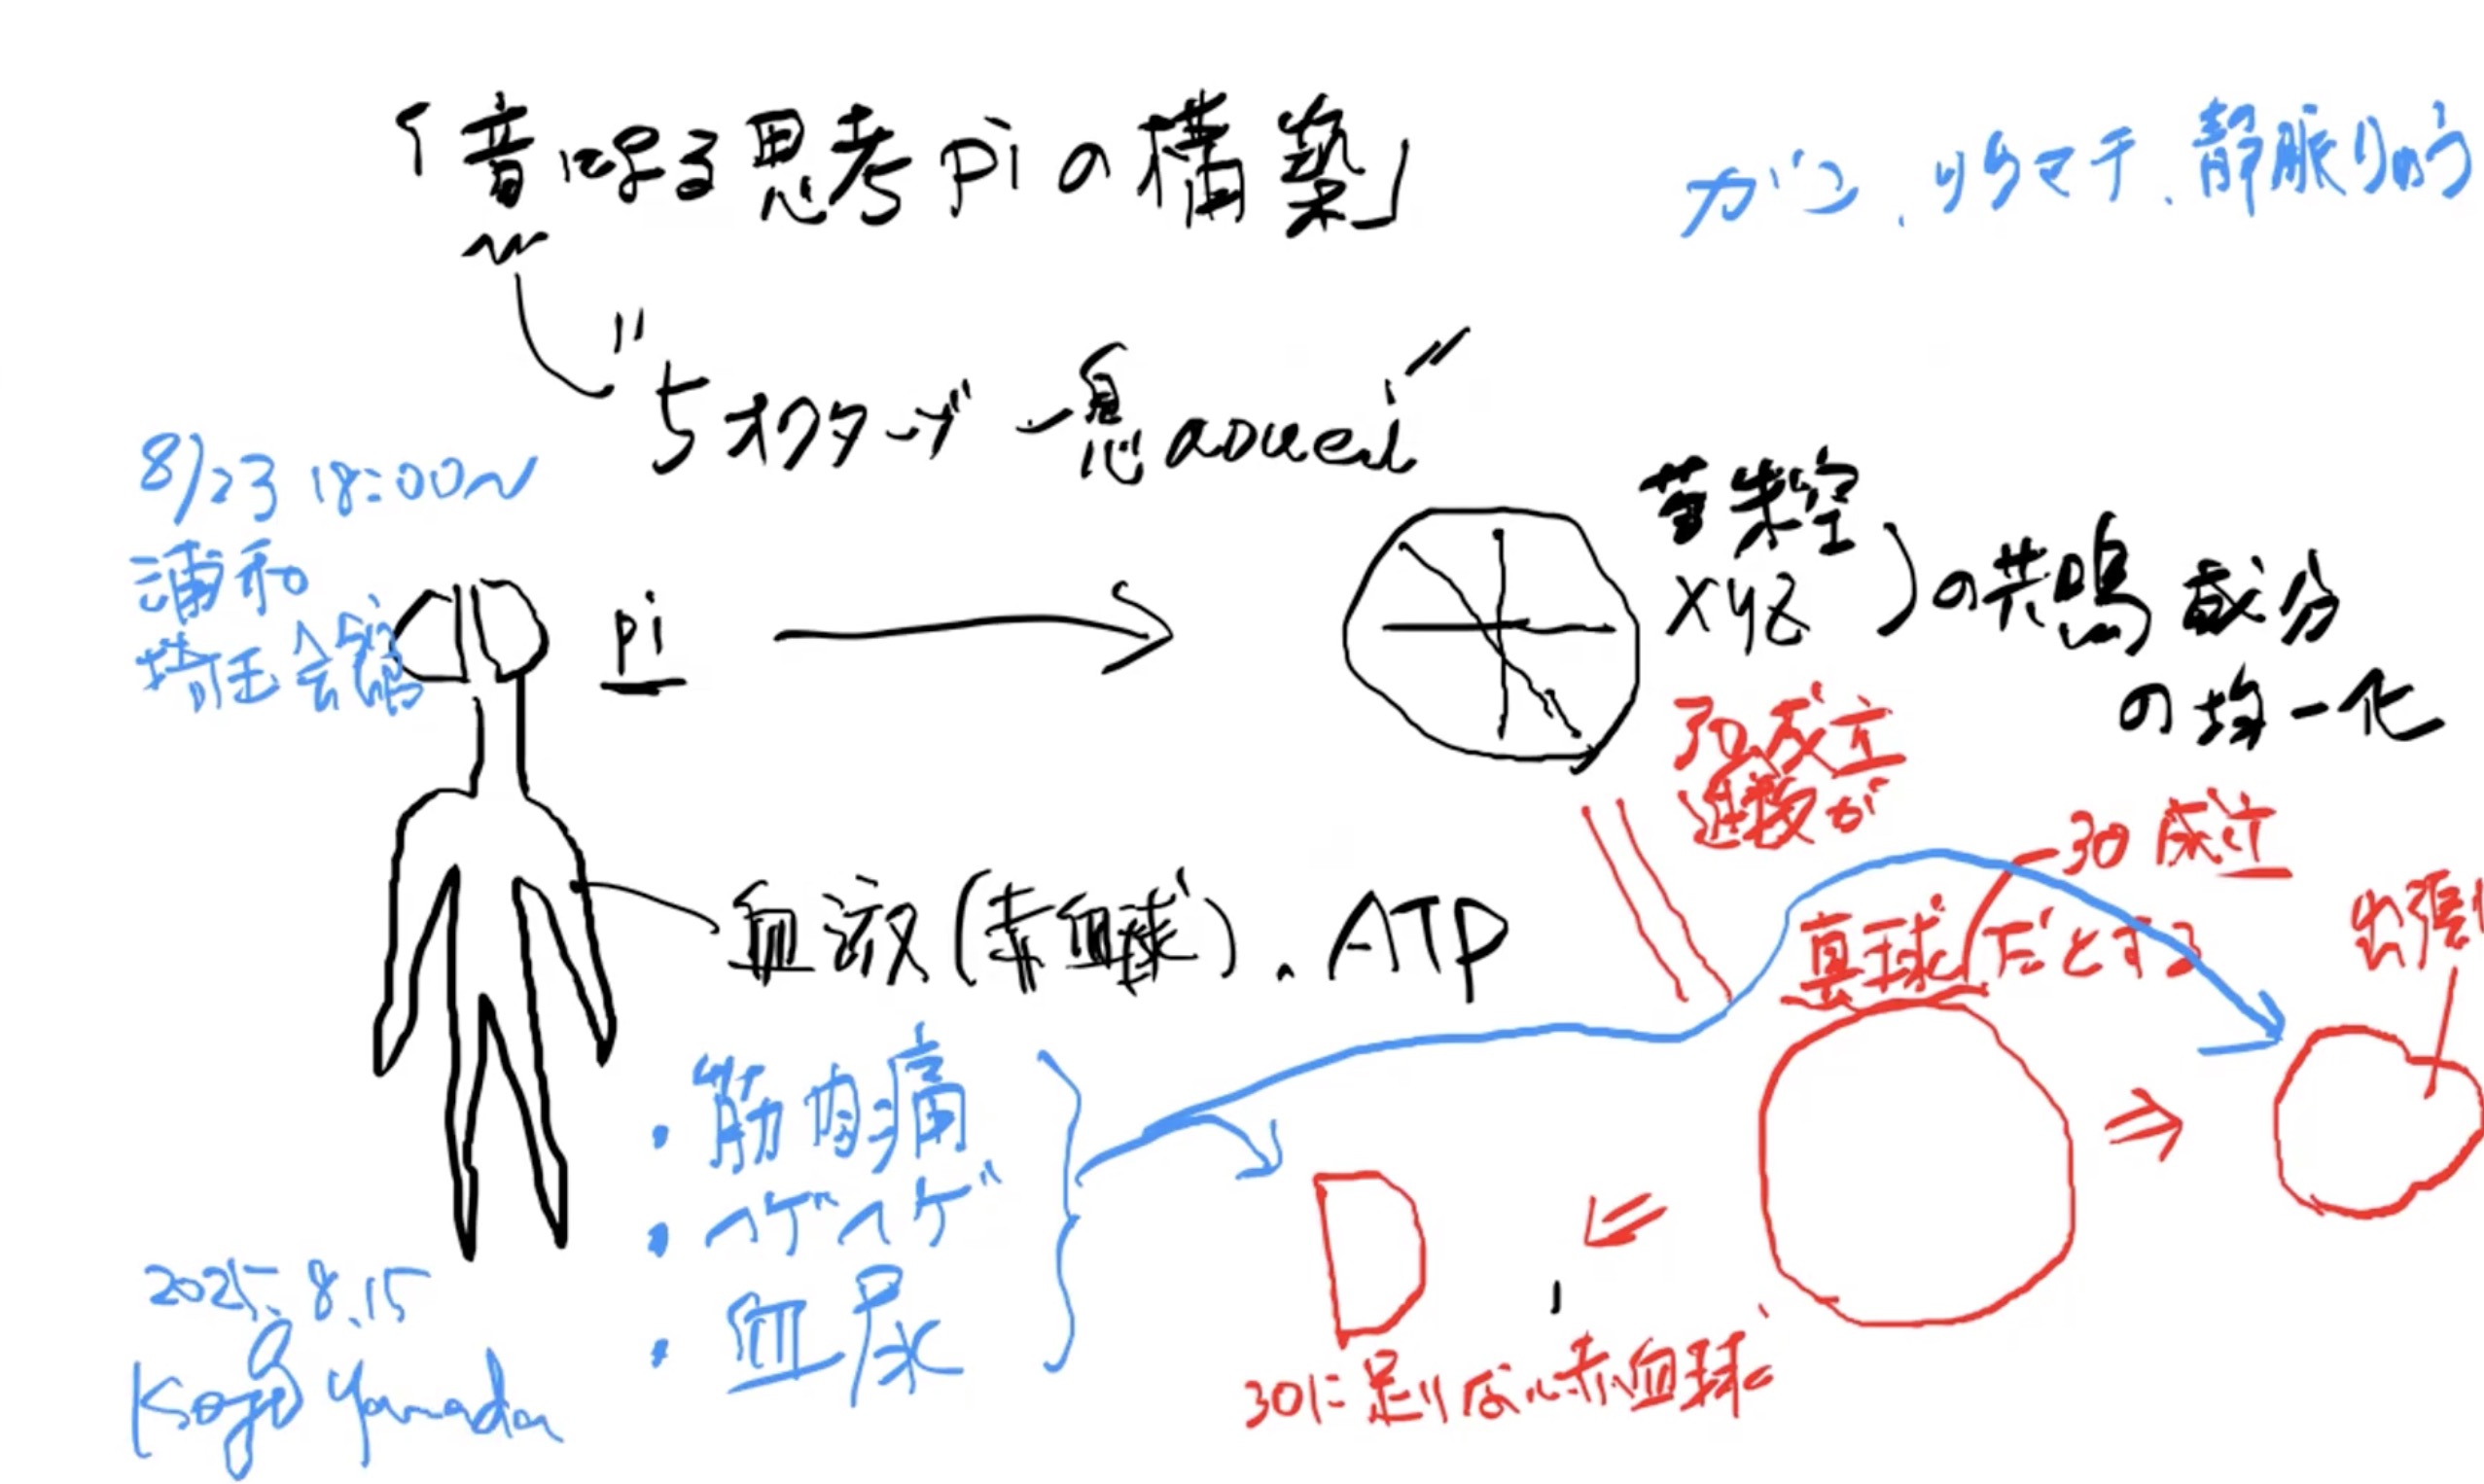 「音による思考piの構築」
ガン、リウマチ、静脈りゅう
"5オクターブ一息aouei"
8/23 18:00〜
浦和
埼玉会館
pi
XYZ
の共鳴成分
の均一化
30成立
30成立
真球だとする
出張り
血液(赤血球)、ATP
・筋肉痛
・ヘゲヘゲ
・血尿
30に足りない赤血球
2025.8.15
Koji Yamada